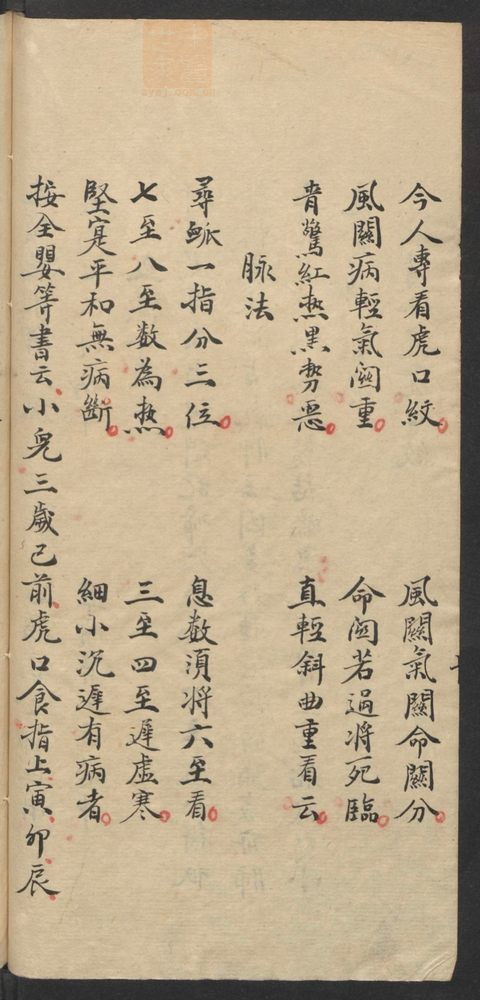 今人專看虎口紋　風關氣關命關分
風關病輕氣関重　命関若過將死臨
青驚紅熱黑勢惡　直輕斜曲重看云
脉法
尋脈一指分三位　息数須将六至看
七至八至数為熱　三至四至遲虛寒
堅寔平和無病斷　細小沉遲有病者
按全嬰等書云小兒三歲已前虎口食指上寅卯辰